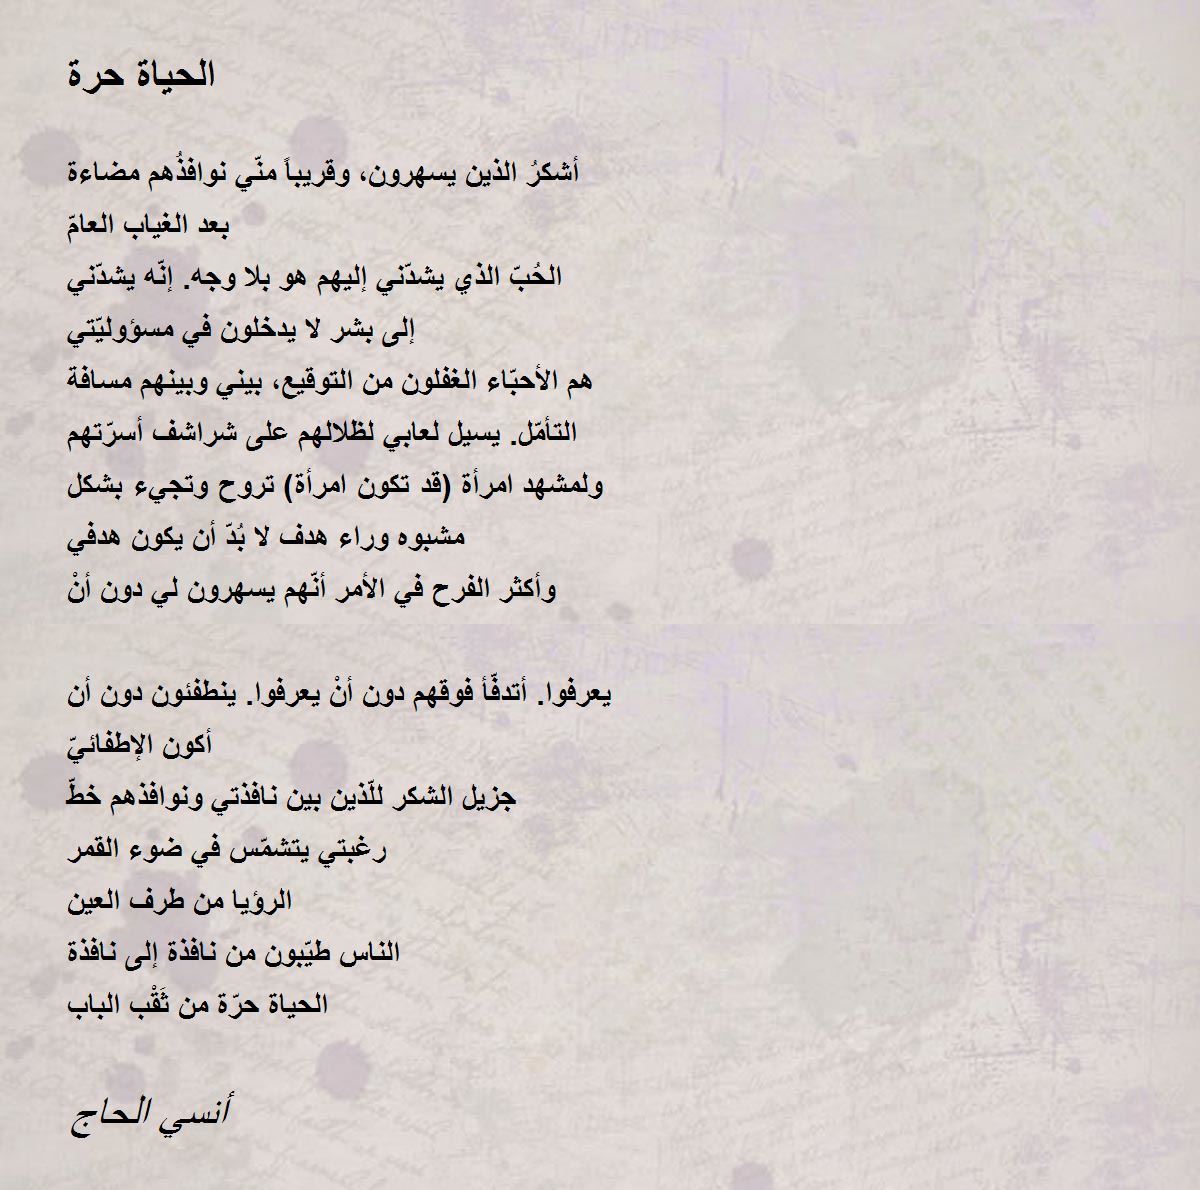 الحياة حرة
أشكرُ الذين يسهرون، وقريباً منّي نوافذُهم مضاءة
بعد الغياب العامّ
الحُبّ الذي يشدّني إليهم هو بلا وجه. إنّه يشدّني
إلى بشر لا يدخلون في مسؤوليّتي
هم الأحبّاء الغفلون من التوقيع، بيني وبينهم مسافة
التأمّل. يسيل لعابي لظلالهم على شراشف أسرّتهم
ولمشهد امرأة (قد تكون امرأة) تروح وتجيء بشكل
مشبوه وراء هدف لا بُدّ أن يكون هدفي
وأكثر الفرح في الأمر أنّهم يسهرون لي دون أنْ
يعرفوا. أتدفّأ فوقهم دون أنْ يعرفوا. ينطفئون دون أن
أكون الإطفائيّ
جزيل الشكر للّذين بين نافذتي ونوافذهم خطّ
رغبتي يتشمّس في ضوء القمر
الرؤيا من طرف العين
الناس طيّبون من نافذة إلى نافذة
الحياة حرّة من ثَقْب الباب
أنسي الحاج